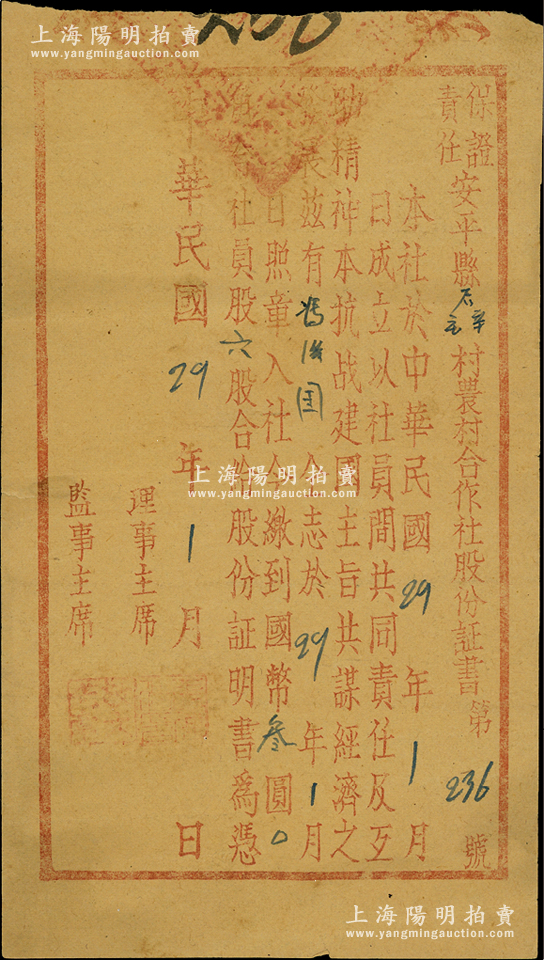 236
保證
責任
安平縣
村農村合作社股份証書第236號
本社於中華民國29年1月
日成立以社員間共同責任及互
助精神本抗战建國主旨共謀經濟之
發展茲有 同志於29年1月
日照章入社今繳到國幣叁圓0
社員股六股合給股份証明書為憑
中華民國29年1月日
理事主席
監事主席
上海陽明拍賣
www.yangmingauction.com
上海陽明拍賣
www.yangmingauction.com
上海陽明拍賣
www.yangmingauction.com